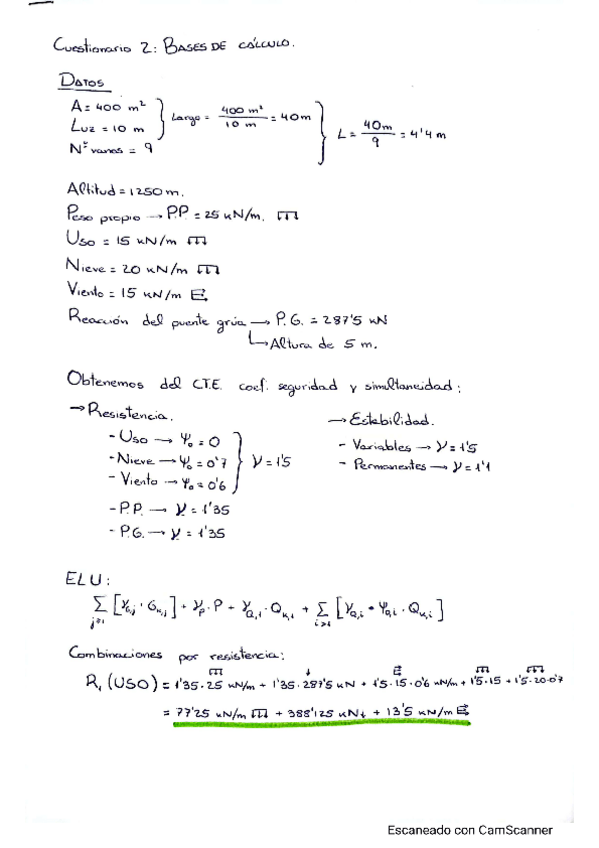 Cuestionario 2: BASES DE CÁLCULO.
DATOS
A = 400 m²
Luz = 10 m
Nº vanos = 9
Largo = 400 m² / 10 m = 40m
L = 40m / 9 = 4'4 m
Altitud = 1250 m.
Peso propio → P.P. = 25 kN/m.
Uso = 15 kN/m
Nieve = 20 kN/m
Viento = 15 kN/m
Reacción del puente grúa → P.G. = 287'5 kN
↳ Altura de 5 m.
Obtenemos del C.T.E. coef. seguridad y simultaneidad:
→ Resistencia.
- Uso → Ψ₀ = 0
- Nieve → Ψ₀ = 0'7
- Viento → Ψ₀ = 0'6
γ = 1'5
- P.P. → γ = 1'35
- P.G. → γ = 1'35
→ Estabilidad.
- Variables → γ = 1'5
- Permanentes → γ = 1'1
ELU:
∑ j≥1 [γG,j · Gk,j] + γp · P + γQ,1 · Qk,1 + ∑ i>1 [γQ,i · Ψ0,i · Qk,i]
Combinaciones por resistencia:
R₁ (USO) = 1'35·25 kN/m + 1'35·287'5 kN + 1'5·15·0'6 kN/m + 1'5·15 + 1'5·20·0'7
= 77'25 kN/m + 388'125 kN↓ + 13'5 kN/m
Escaneado con CamScanner